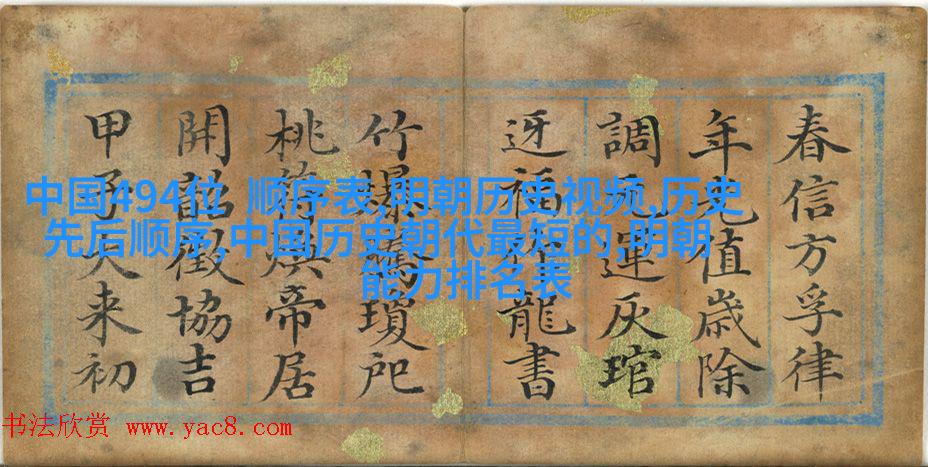 春信方孚律
年光值歲除
調元運灰琯
迓福龍書
竹爆瓊
桃符煥帝居
開韶徵協吉
甲子来初
中国494位 顺序表,明朝历史视频,历史
先后顺序,中国历史朝代最短的,明朝
能力排名表
书法欣赏 www.yac8.com